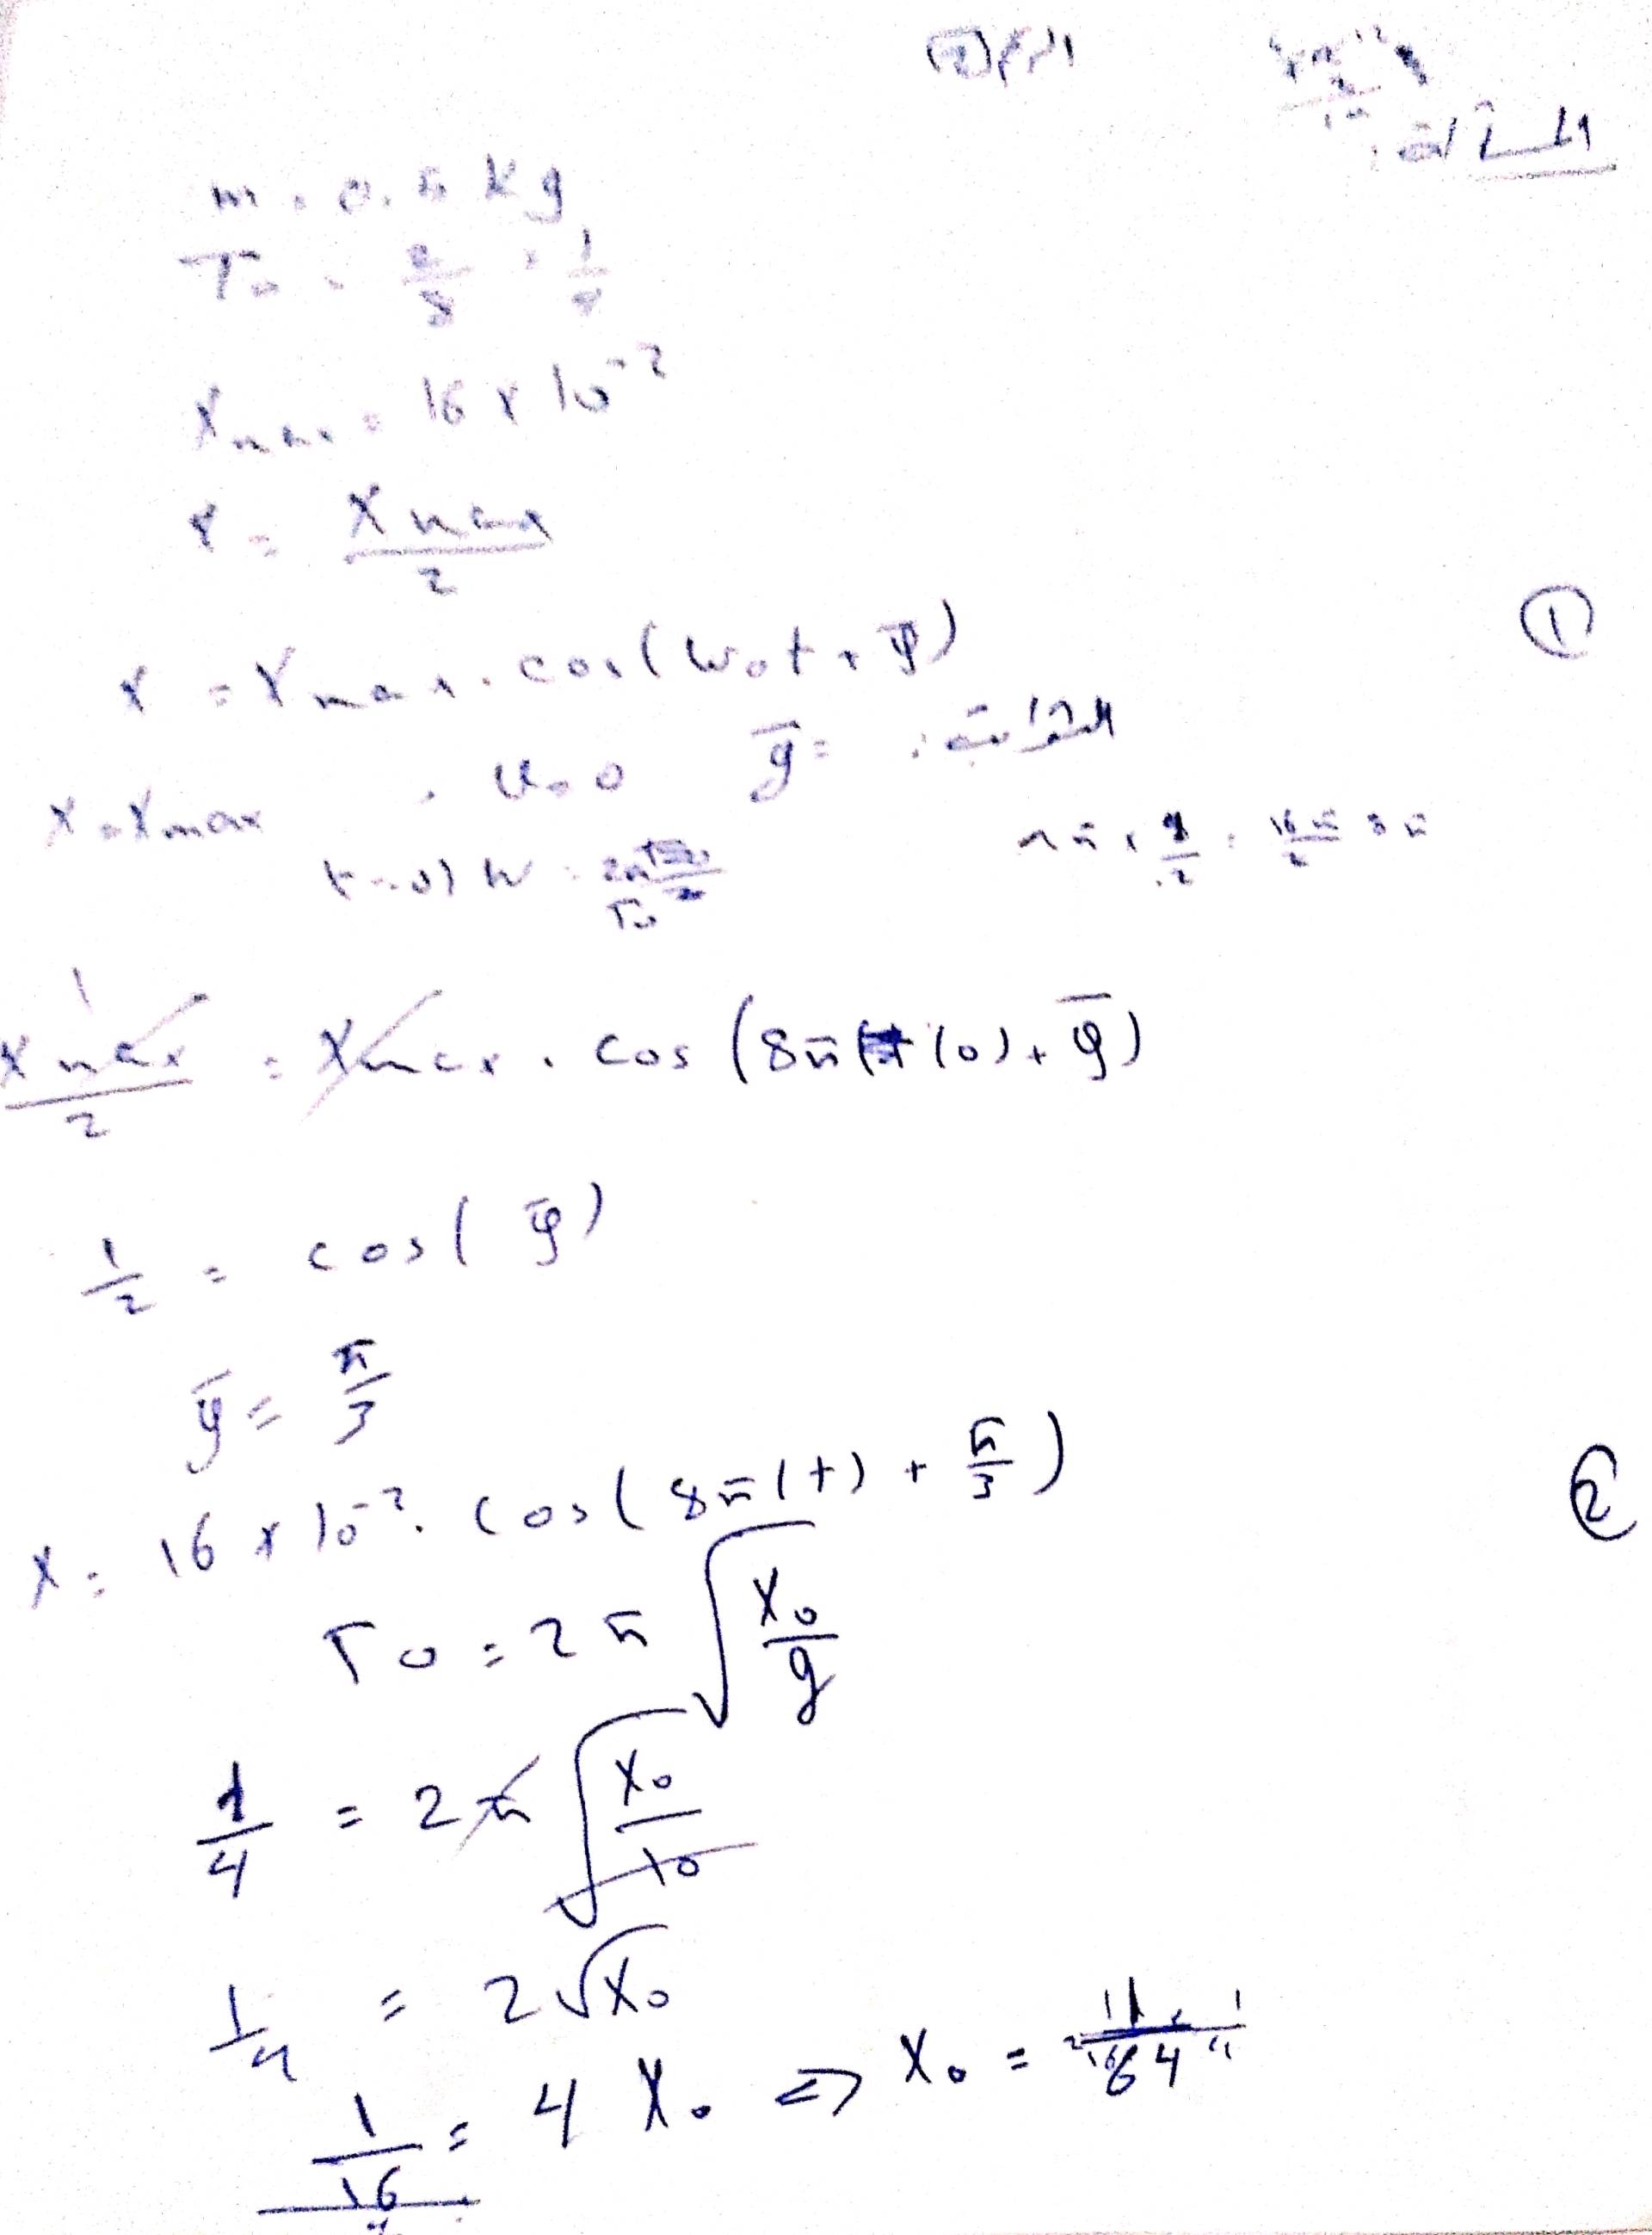 m = 0.5 kg
T₀ = 2/8 = 1/4
Xmax = 16 × 10⁻²
x = Xmax/2
①
x = Xmax . cos(ω₀t + φ̄)
φ̄ = الثوابت :
x = Xmax , v = 0
t = 0) ω = 2π/T₀
Xmax/2 = Xmax . cos (8π(0) + φ̄)
1/2 = cos( φ̄ )
φ̄ = π/3
②
x = 16 × 10⁻² . cos( 8π(t) + π/3 )
T₀ = 2π √(X₀/g)
1/4 = 2π √(X₀/10)
1/4 = 2√X₀
1/16 = 4 X₀ ⇒ X₀ = 1/64